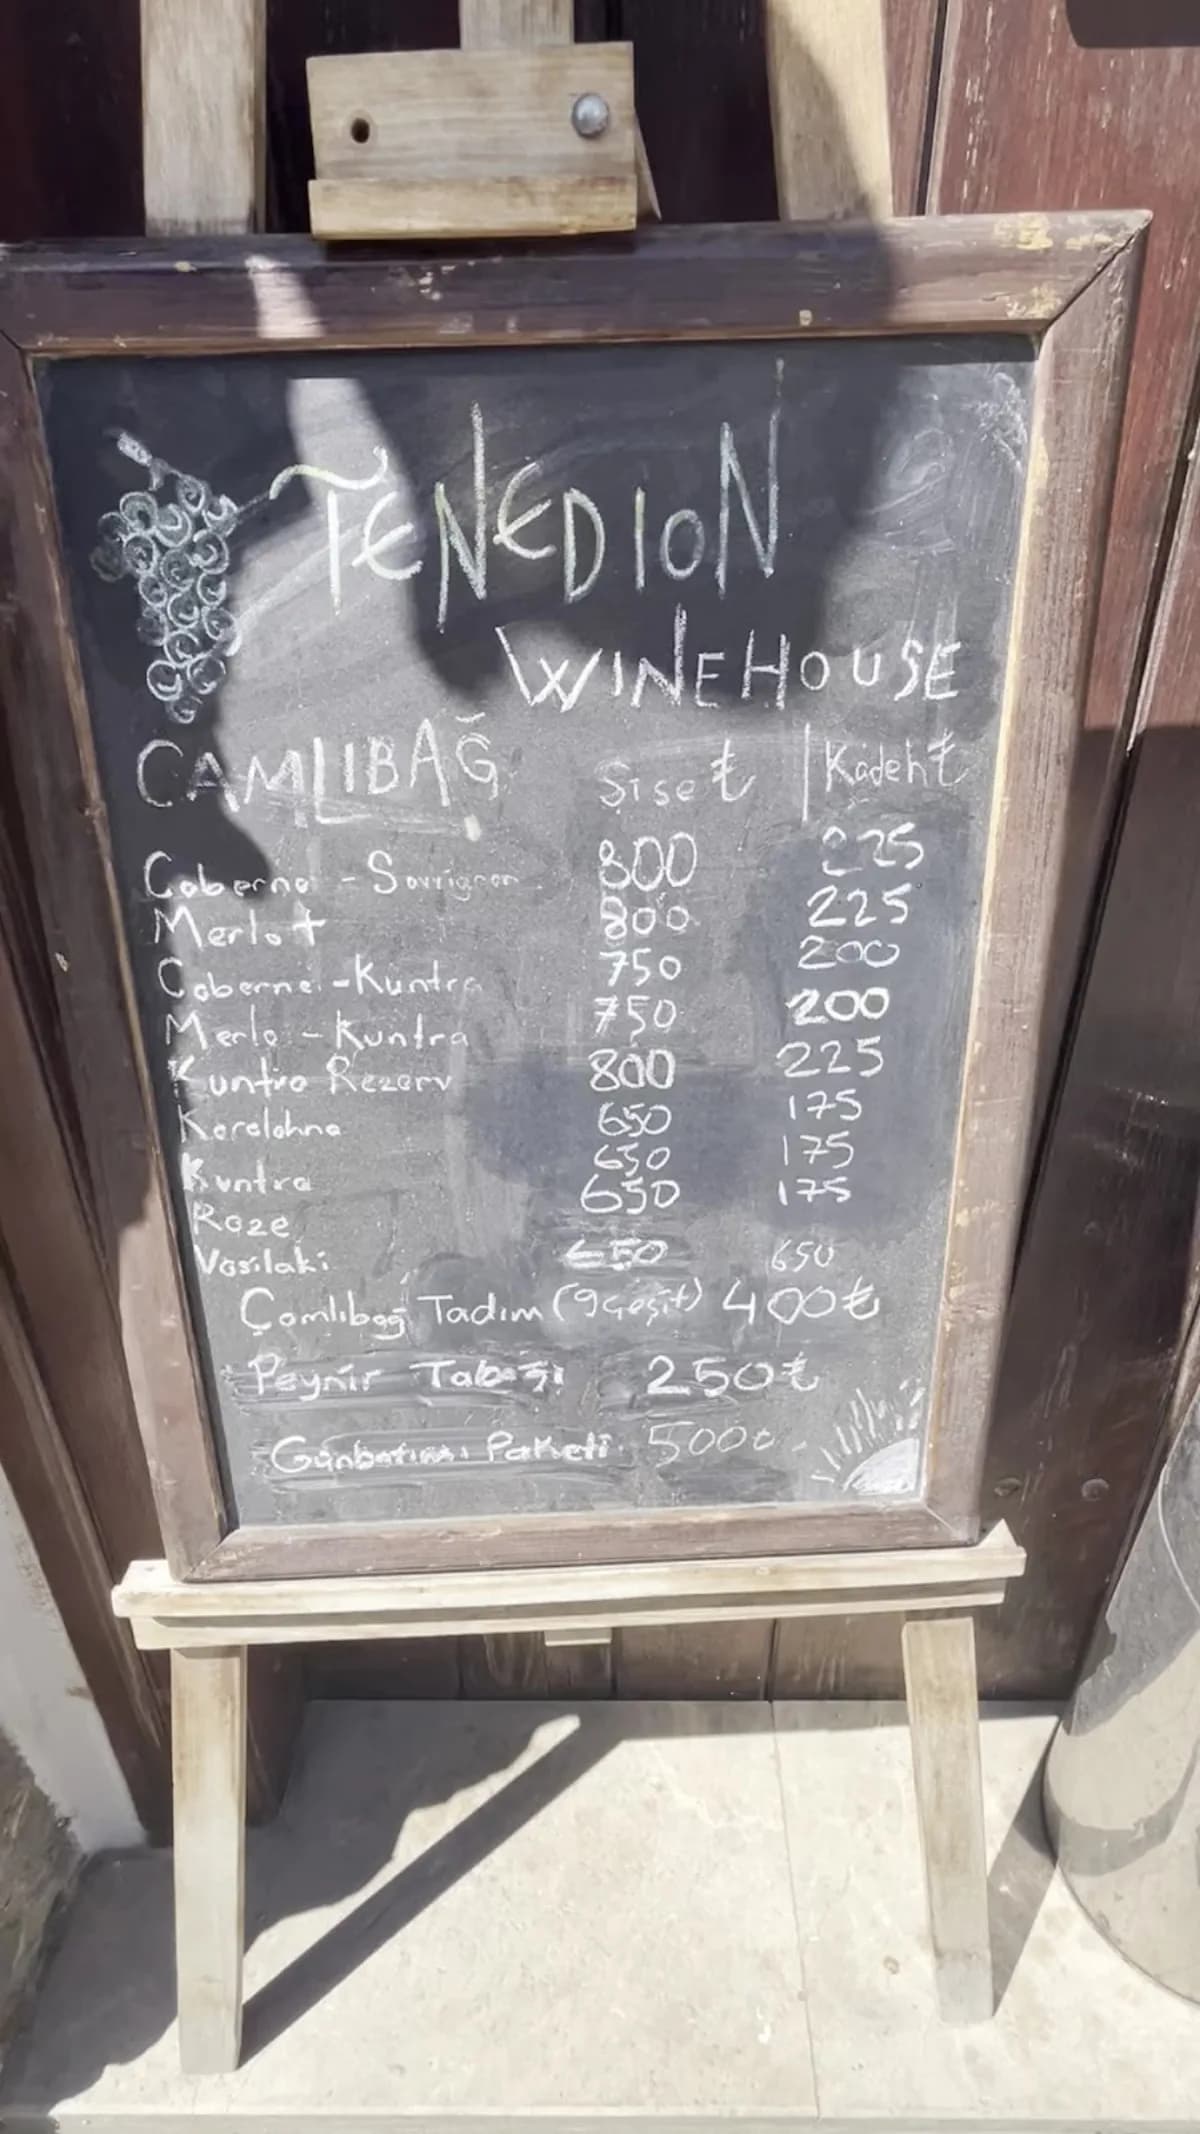 TENEDION
WINEHOUSE
ÇAMLIBAĞ Şişe ₺ | Kadeh ₺
Caberne - Sovvignon 800 225
Merlot 800 225
Caberne - Kuntra 750 200
Merlo - Kuntra 750 200
Kuntra Rezerv 800 225
Karalahna 650 175
Kuntra 650 175
Roze 650 175
Vasilaki 650 650
Çamlıbağ Tadım (9 çeşit) 400₺
Peynir Tabağı 250₺
Günbatımı Paketi